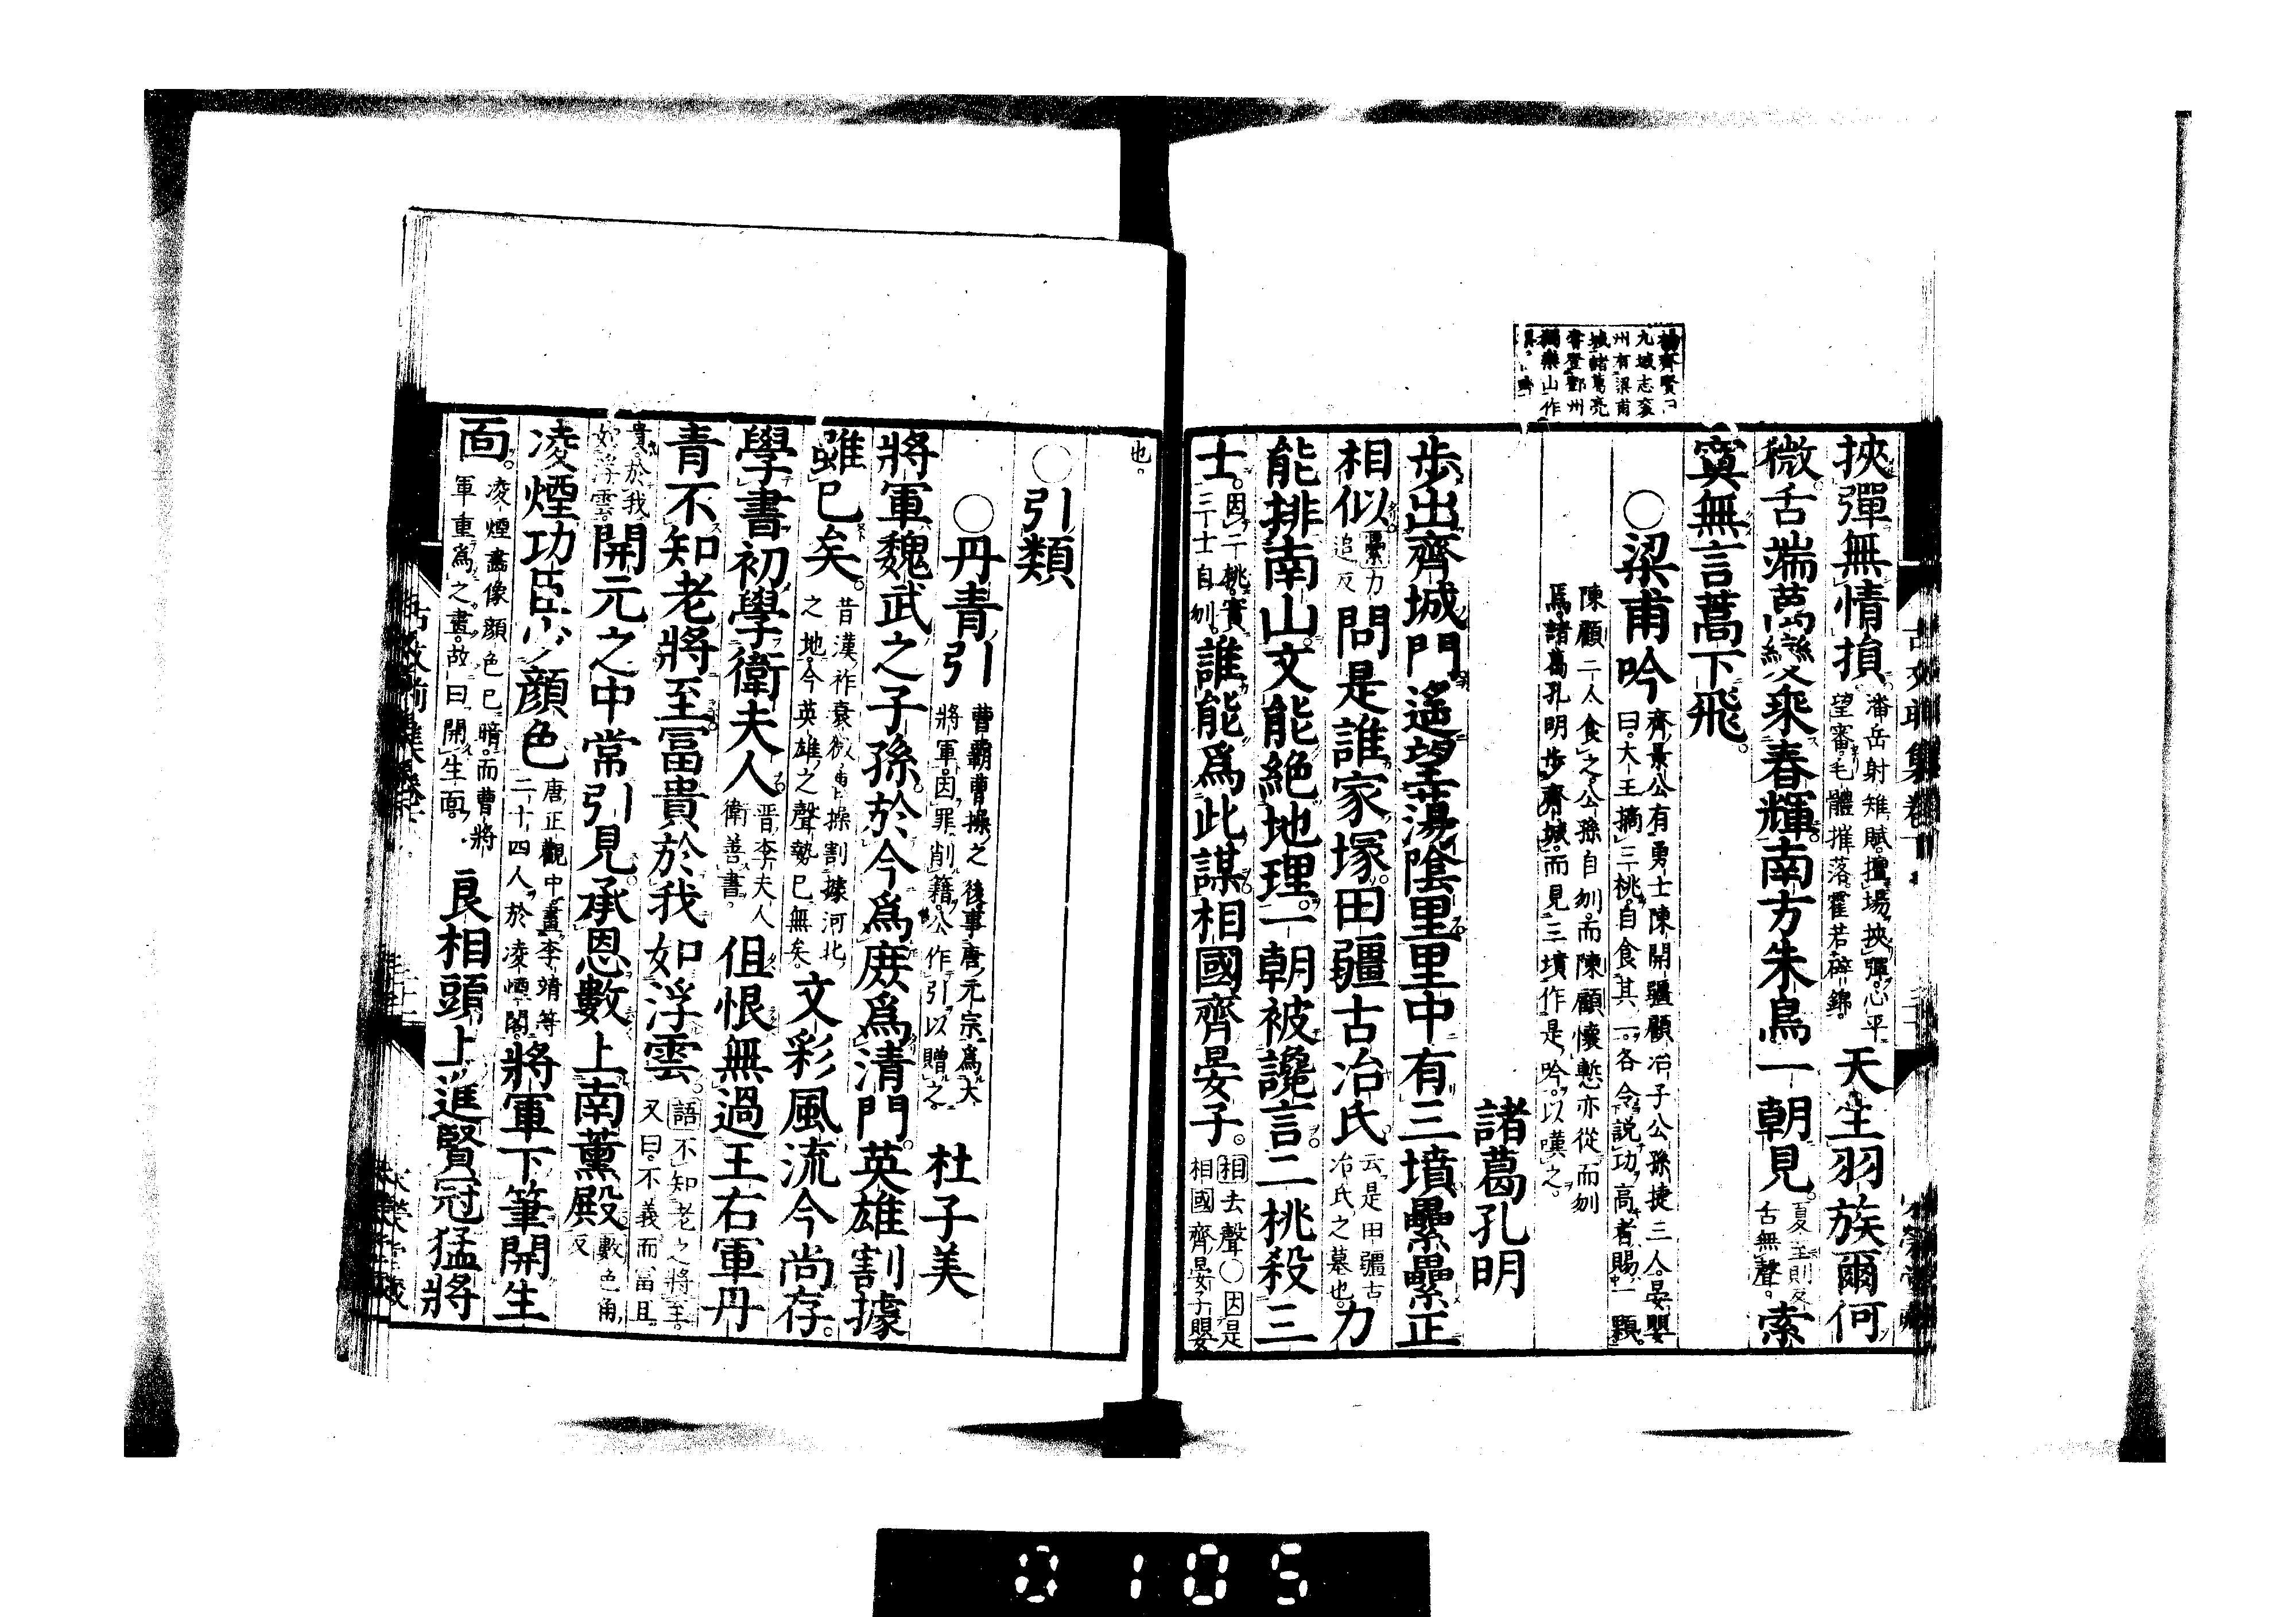 挾彈無情損潘岳射雉賦擅場挾彈心平望審毛體摧落霍若碎錦天生羽族爾何
微舌端萬變乘春輝南方朱鳥一朝見夏至則反舌無聲索
寞無言蒿下飛
○梁甫吟齊景公有勇士陳開疆顧冶子公孫捷三人晏嬰曰大王摘三桃自食其一各令說功高者賜一顆
陳顧二人食之公孫自刎而陳顧懷慙亦從而刎焉諸葛孔明步齊城而見三墳作是吟以嘆之
諸葛孔明
步出齊城門遙望蕩陰里里中有三墳纍纍正
相似纍力追反問是誰家塚田疆古冶氏云是田疆古冶氏之墓也力
能排南山文能絕地理一朝被讒言二桃殺三
士因二桃實三士自刎誰能爲此謀相國齊晏子相去聲○因是相國齊晏子嬰
也
○引類
○丹青引曹霸曹操之後事唐元宗爲大將軍因罪削籍公作引以贈之杜子美
將軍魏武之子孫於今爲庶爲清門英雄割據
雖已矣昔漢祚衰微曹操割據河北之地今英雄之聲勢已無矣文彩風流今尚存
學書初學衛夫人晋李夫人衛善書但恨無過王右軍丹
青不知老將至富貴於我如浮雲語不知老之將至又曰不義而富且
貴於我如浮雲開元之中常引見承恩數上南薰殿數色角反
凌煙功臣少顏色唐正觀中畫李靖等二十四人於凌煙閣將軍下筆開生
面凌煙畫像顏色已暗而曹將軍重爲之畫故曰開生面良相頭上進賢冠猛將